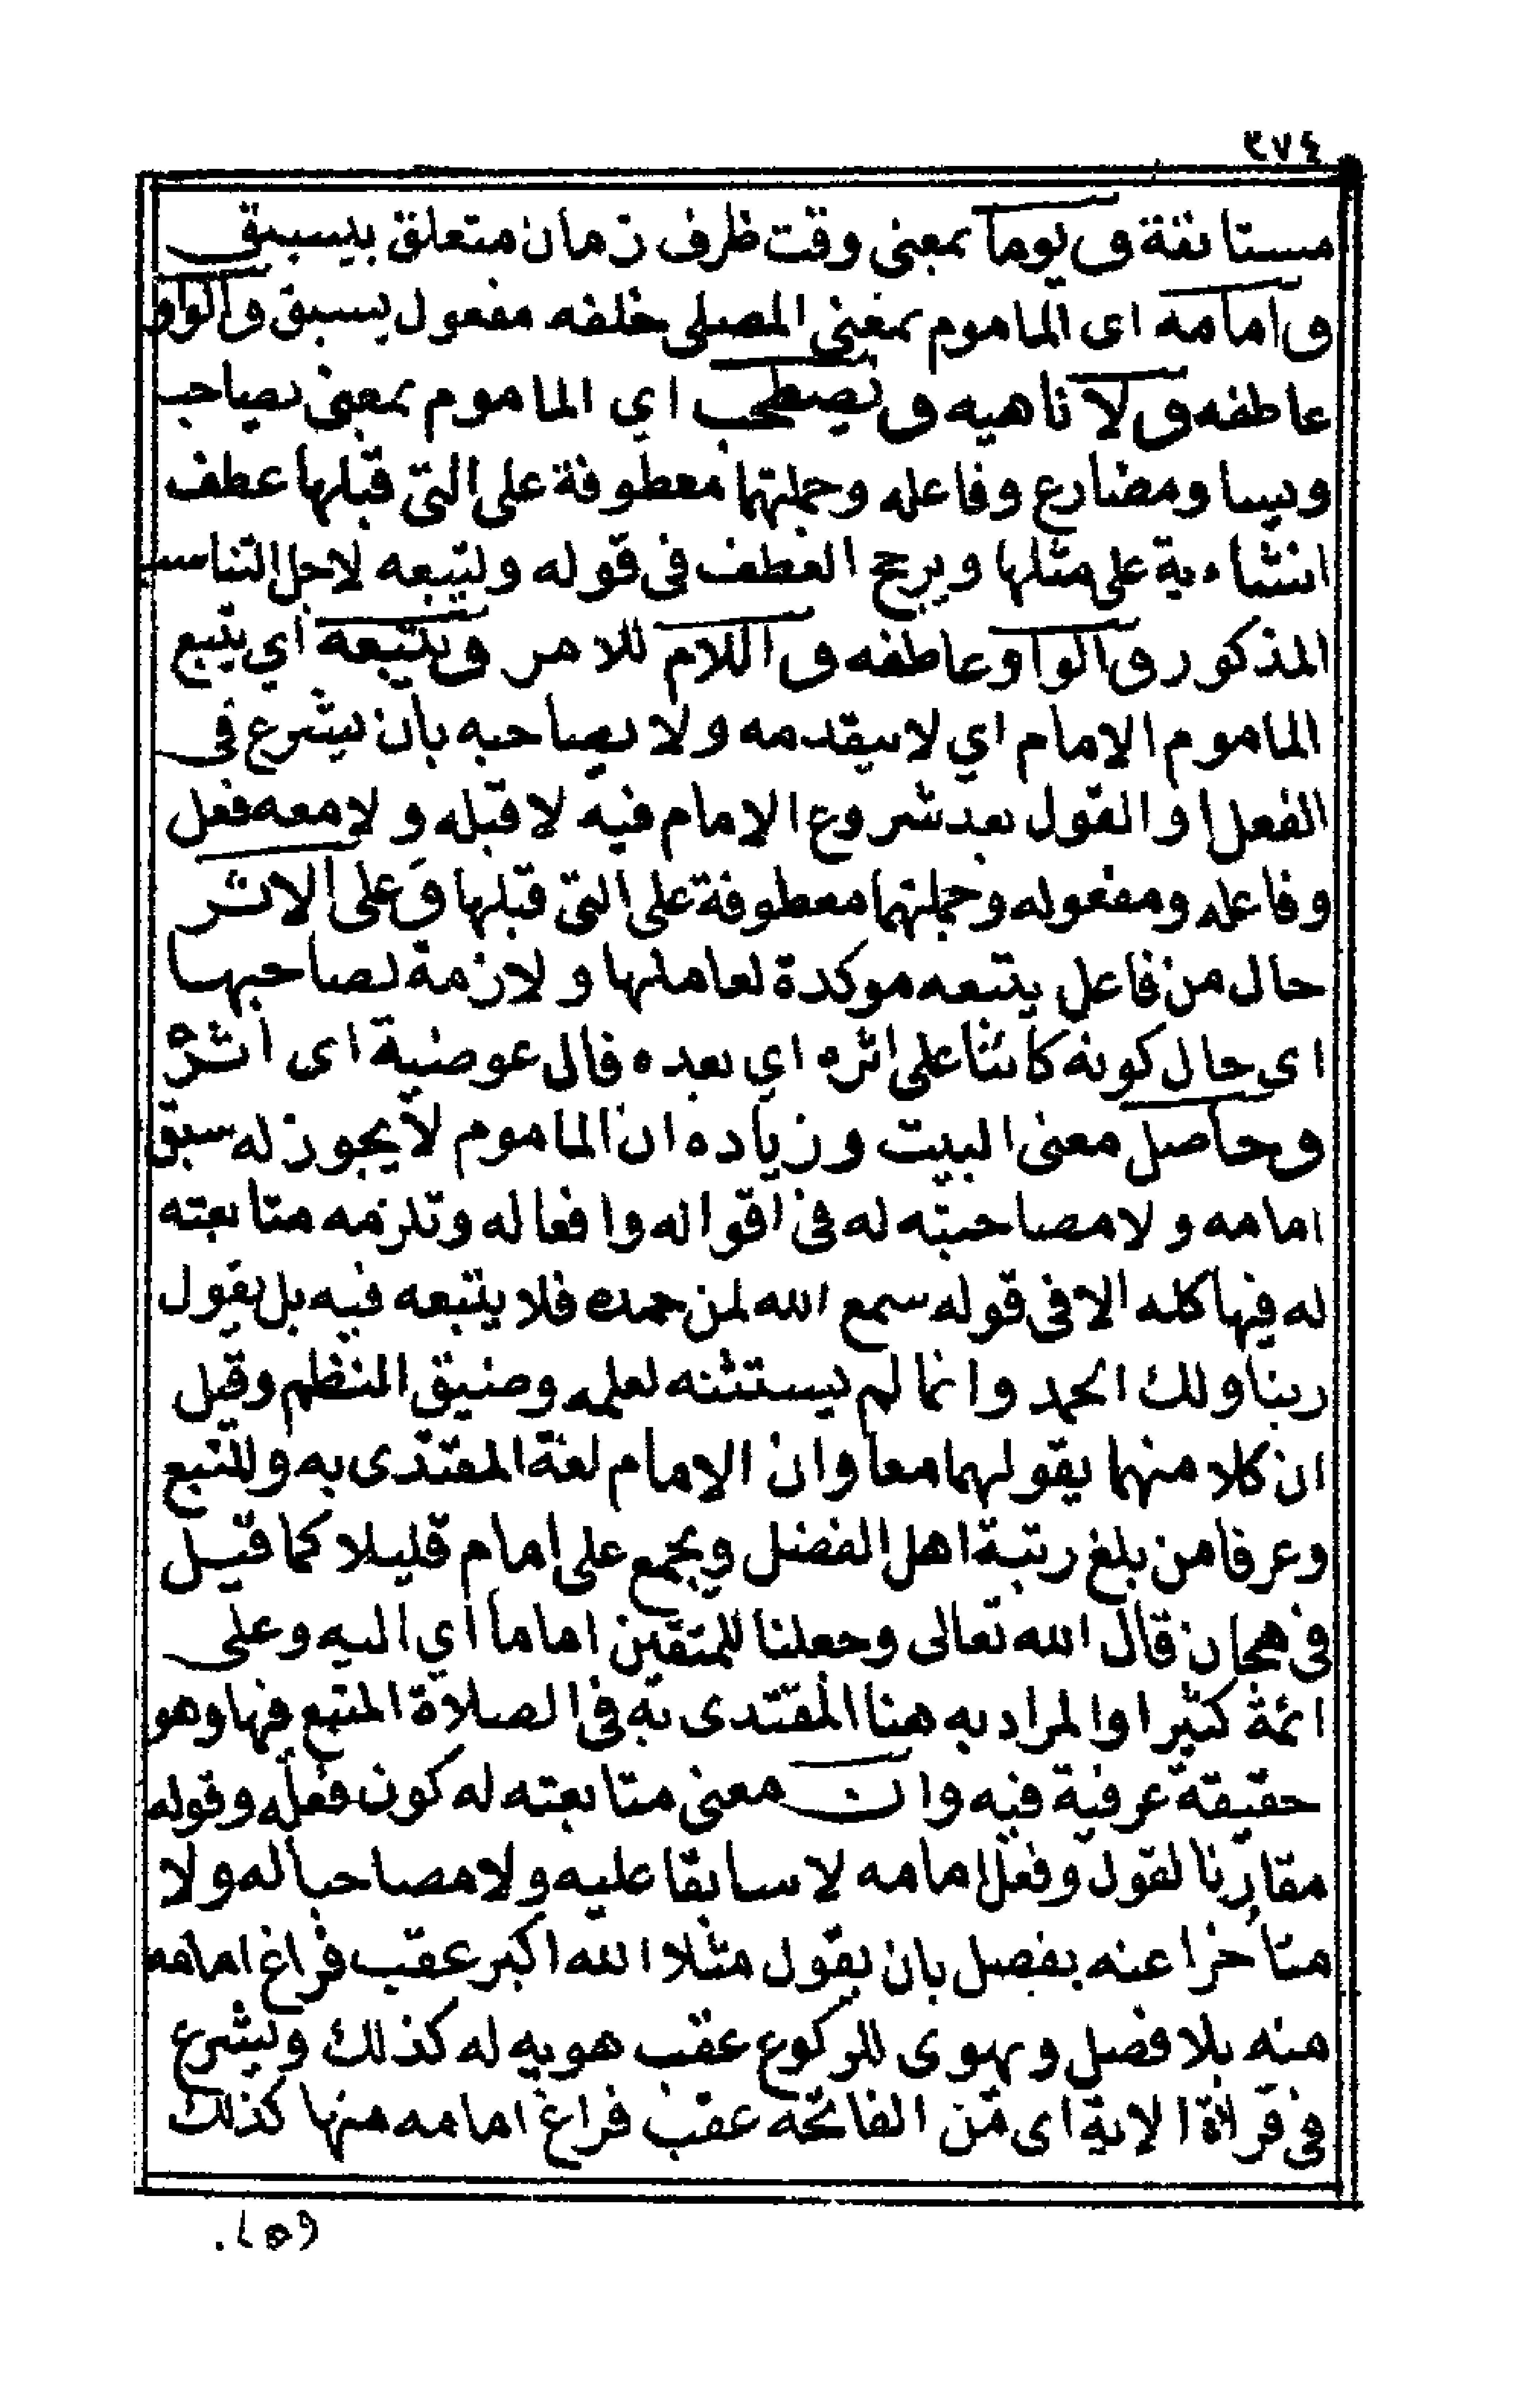 ٣٧٤
مستانفة و يوما بمعنى وقت ظرف زمان متعلق بيسبق
و امامه اى الماموم بمعنى المصلى خلفه مفعول يسبق والواو
عاطفه و لا ناهيه و يصطحب اي الماموم بمعنى يصاحب
ومضارع وفاعله وجملتهما معطوفة على التى قبلها عطف
انشاءية على مثلها ويرجح العطف فى قوله وليتبعه لاجل التناسب
المذكور و الواو عاطفه و اللام للامر و يتبعه اي يتبع
الماموم الامام اي لا يتقدمه ولا يصاحبه بان يشرع فى
الفعل او القول بعد شروع الامام فيه لا قبله و لا معه فعل
وفاعله ومفعوله وجملتهما معطوفة على التى قبلها و على الاثر
حال من فاعل يتبعه موكدة لعاملها و لازمة لصاحبها
اى حال كونه كائنا على اثره اي بعده فال عوضية اى اثره
وحاصل معنى البيت وزياده ان الماموم لا يجوز له سبق
امامه و لا مصاحبته له فى اقواله وافعاله وتلزمه متابعته
له فيها كله الا فى قوله سمع الله لمن حمده فلا يتبعه فيه بل يقول
ربنا ولك الحمد وانما لم يستثنه لعلمه وضيق النظم وقيل
ان كلا منهما يقولهما معا وان الامام لغة المقتدى به والمتبع
وعرفا من بلغ رتبة اهل الفضل ويجمع على امام قليلا كما قيل
فى هجان قال الله تعالى وجعلنا للمتقين اماما اي اليه وعلى
ائمة كثيرا والمراد به هنا المقتدى به فى الصلاة المتبع فيها وهو
حقيقة عرفية فيه وان معنى متابعته له كون فعله وقوله
مقارنا لقول وفعل امامه لا سابقا عليه ولا مصاحبا له ولا
متأخرا عنه بفصل بان يقول مثلا الله اكبر عقب فراغ امامه
منه بلا فصل ويهوى للركوع عقب هويه له كذلك ويشرع
فى قرأة الاية اى من الفاتحه عقب فراغ امامه منها كذلك